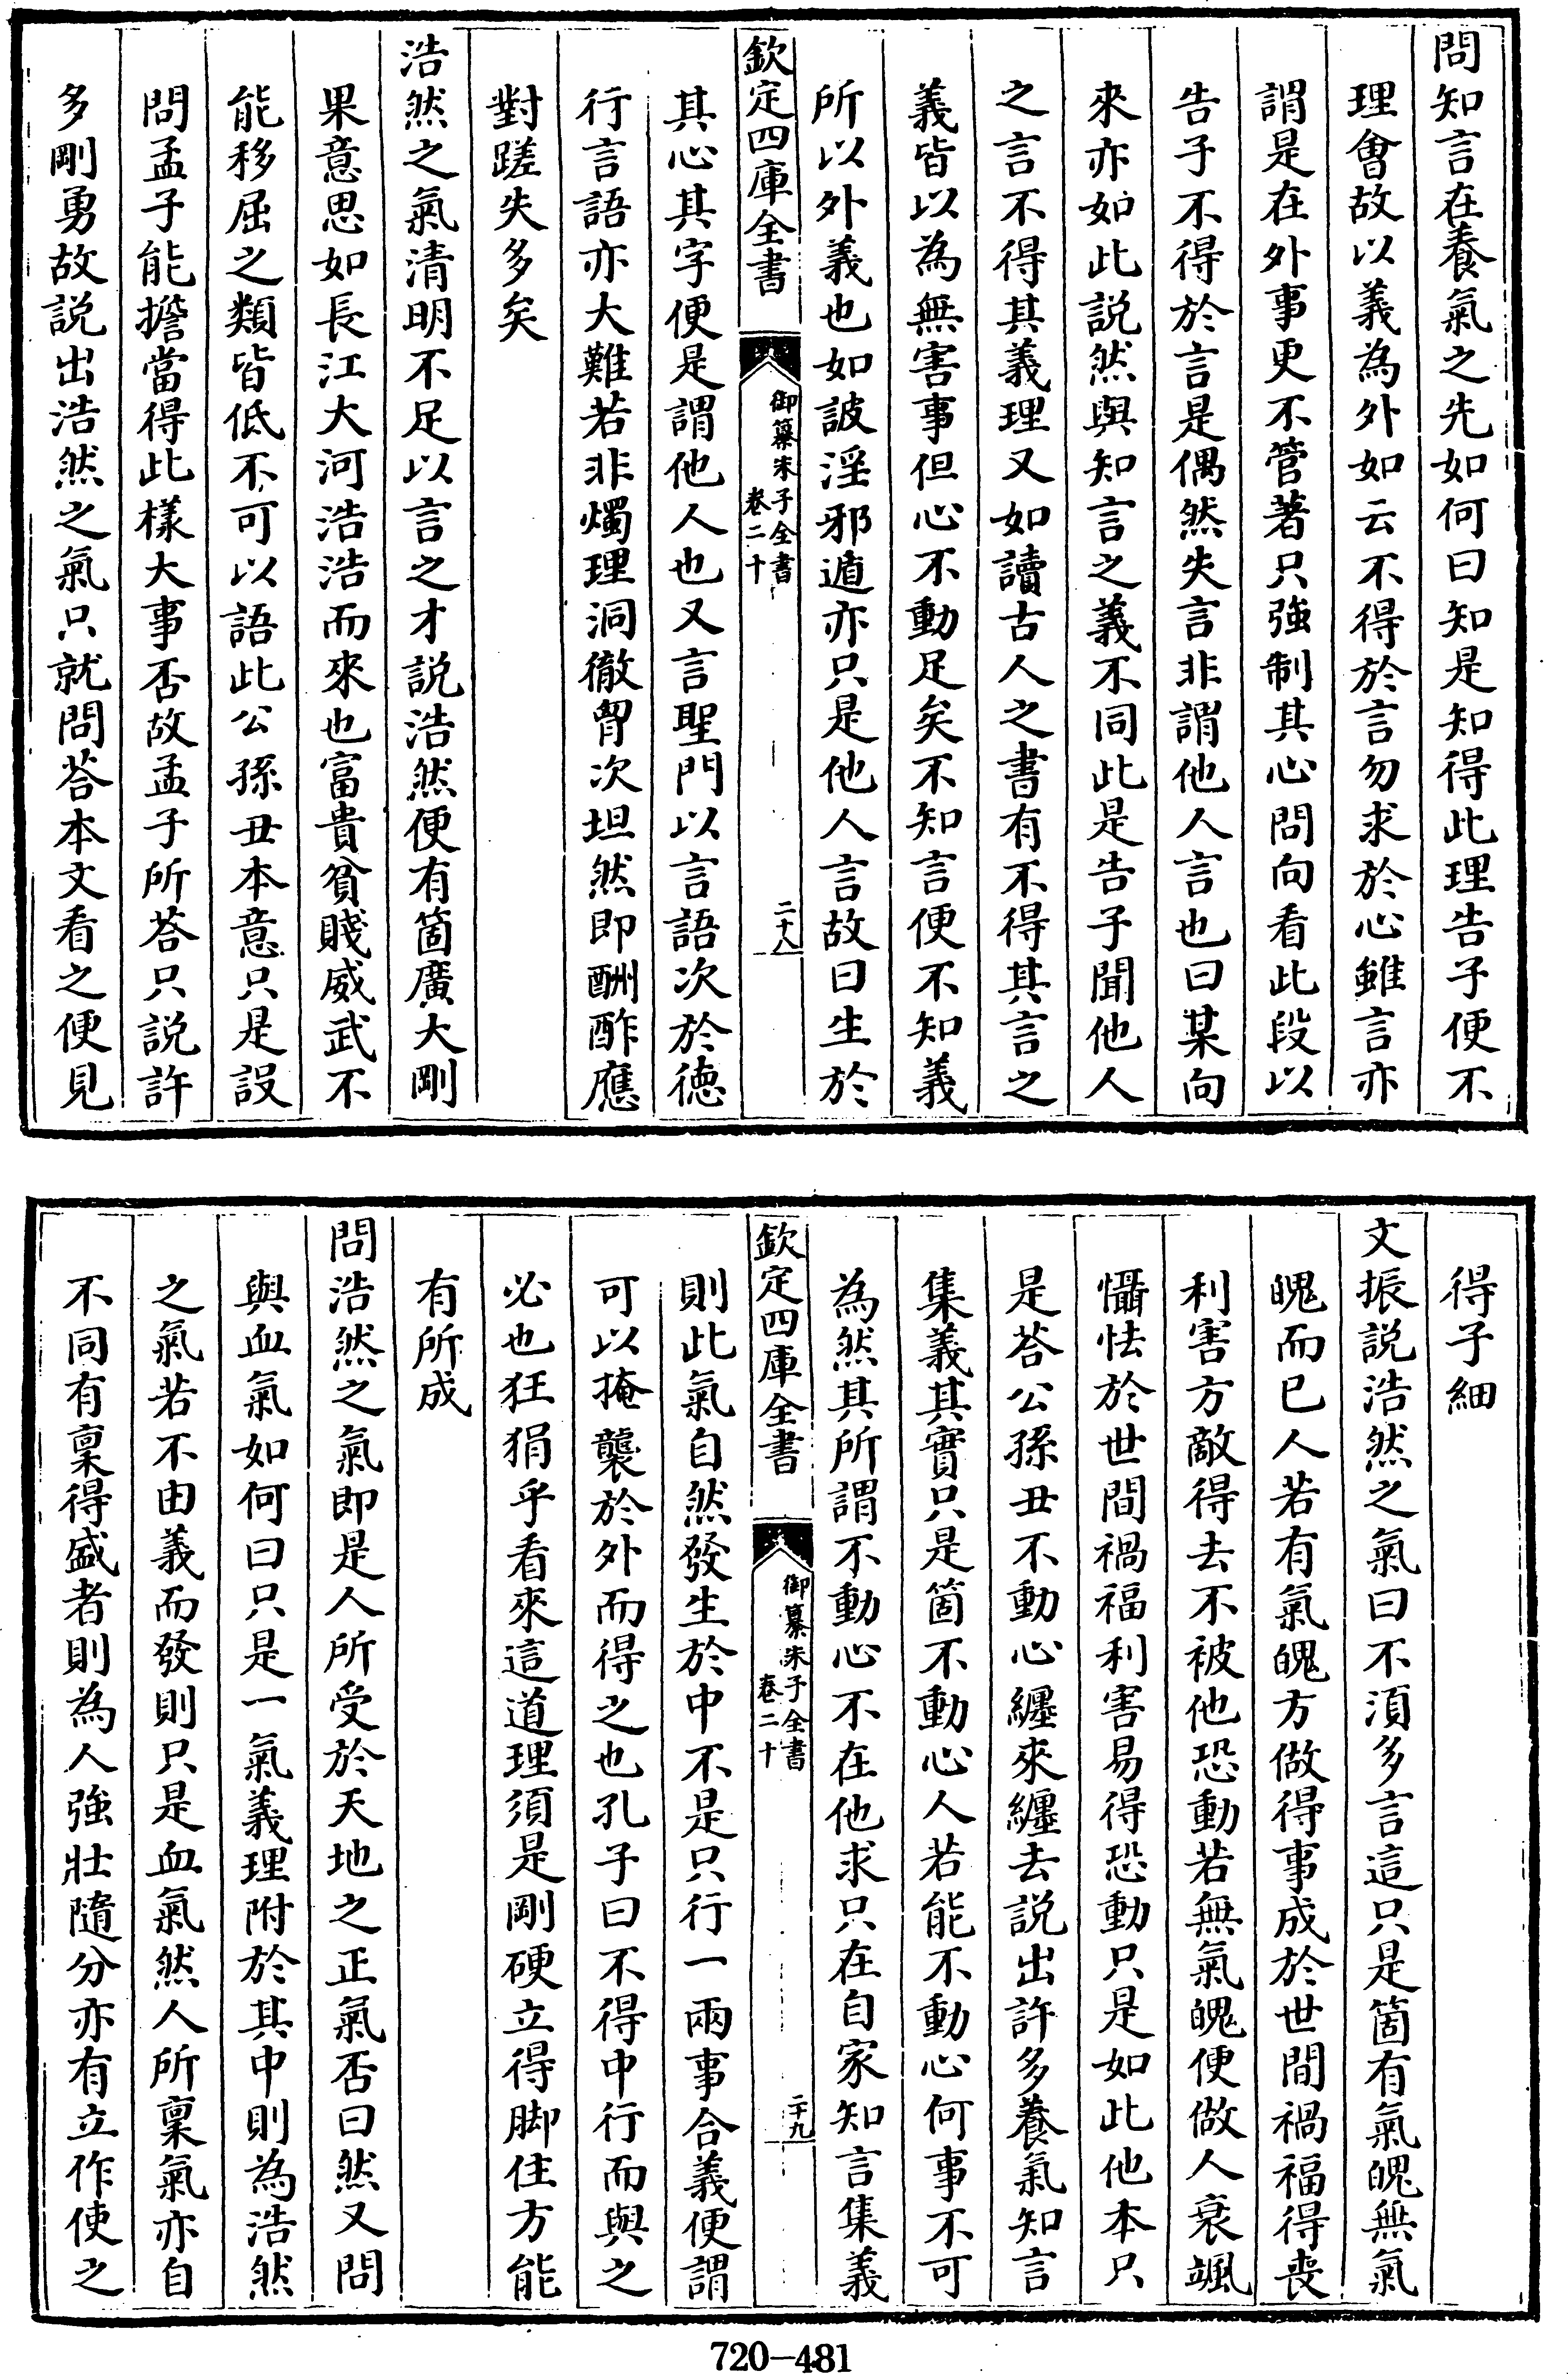 問知言在養氣之先如何曰知是知得此理告子便不
理㑹故以義為外如云不得於言勿求於心雖言亦
謂是在外事更不管著只強制其心問向看此段以
告子不得於言是偶然失言非謂他人言也曰某向
來亦如此説然與知言之義不同此是告子聞他人
之言不得其義理又如讀古人之書有不得其言之
義皆以為無害事但心不動足矣不知言便不知義
所以外義也如詖淫邪遁亦只是他人言故曰生於
欽定四庫全書
御纂朱子全書
卷二十
二十八
其心其字便是謂他人也又言聖門以言語次於德
行言語亦大難若非燭理洞徹胷次坦然即酬酢應
對蹉失多矣
浩然之氣清明不足以言之才説浩然便有箇廣大剛
果意思如長江大河浩浩而來也富貴貧賤威武不
能移屈之類皆低不可以語此公孫丑本意只是設
問孟子能擔當得此樣大事否故孟子所荅只説許
多剛勇故説出浩然之氣只就問荅本文看之便見
得子細
文振説浩然之氣曰不湏多言這只是箇有氣魄無氣
魄而已人若有氣魄方做得事成於世間禍福得喪
利害方敵得去不被他恐動若無氣魄便做人衰颯
懾怯於世間禍福利害易得恐動只是如此他本只
是荅公孫丑不動心纒來纒去説出許多養氣知言
集義其實只是箇不動心人若能不動心何事不可
為然其所謂不動心不在他求只在自家知言集義
欽定四庫全書
御纂朱子全書
卷二十
二十九
則此氣自然發生於中不是只行一兩事合義便謂
可以掩襲於外而得之也孔子曰不得中行而與之
必也狂狷乎看來這道理須是剛硬立得脚住方能
有所成
問浩然之氣即是人所受於天地之正氣否曰然又問
與血氣如何曰只是一氣義理附於其中則為浩然
之氣若不由義而發則只是血氣然人所禀氣亦自
不同有禀得盛者則為人強壯隨分亦有立作使之
720-481